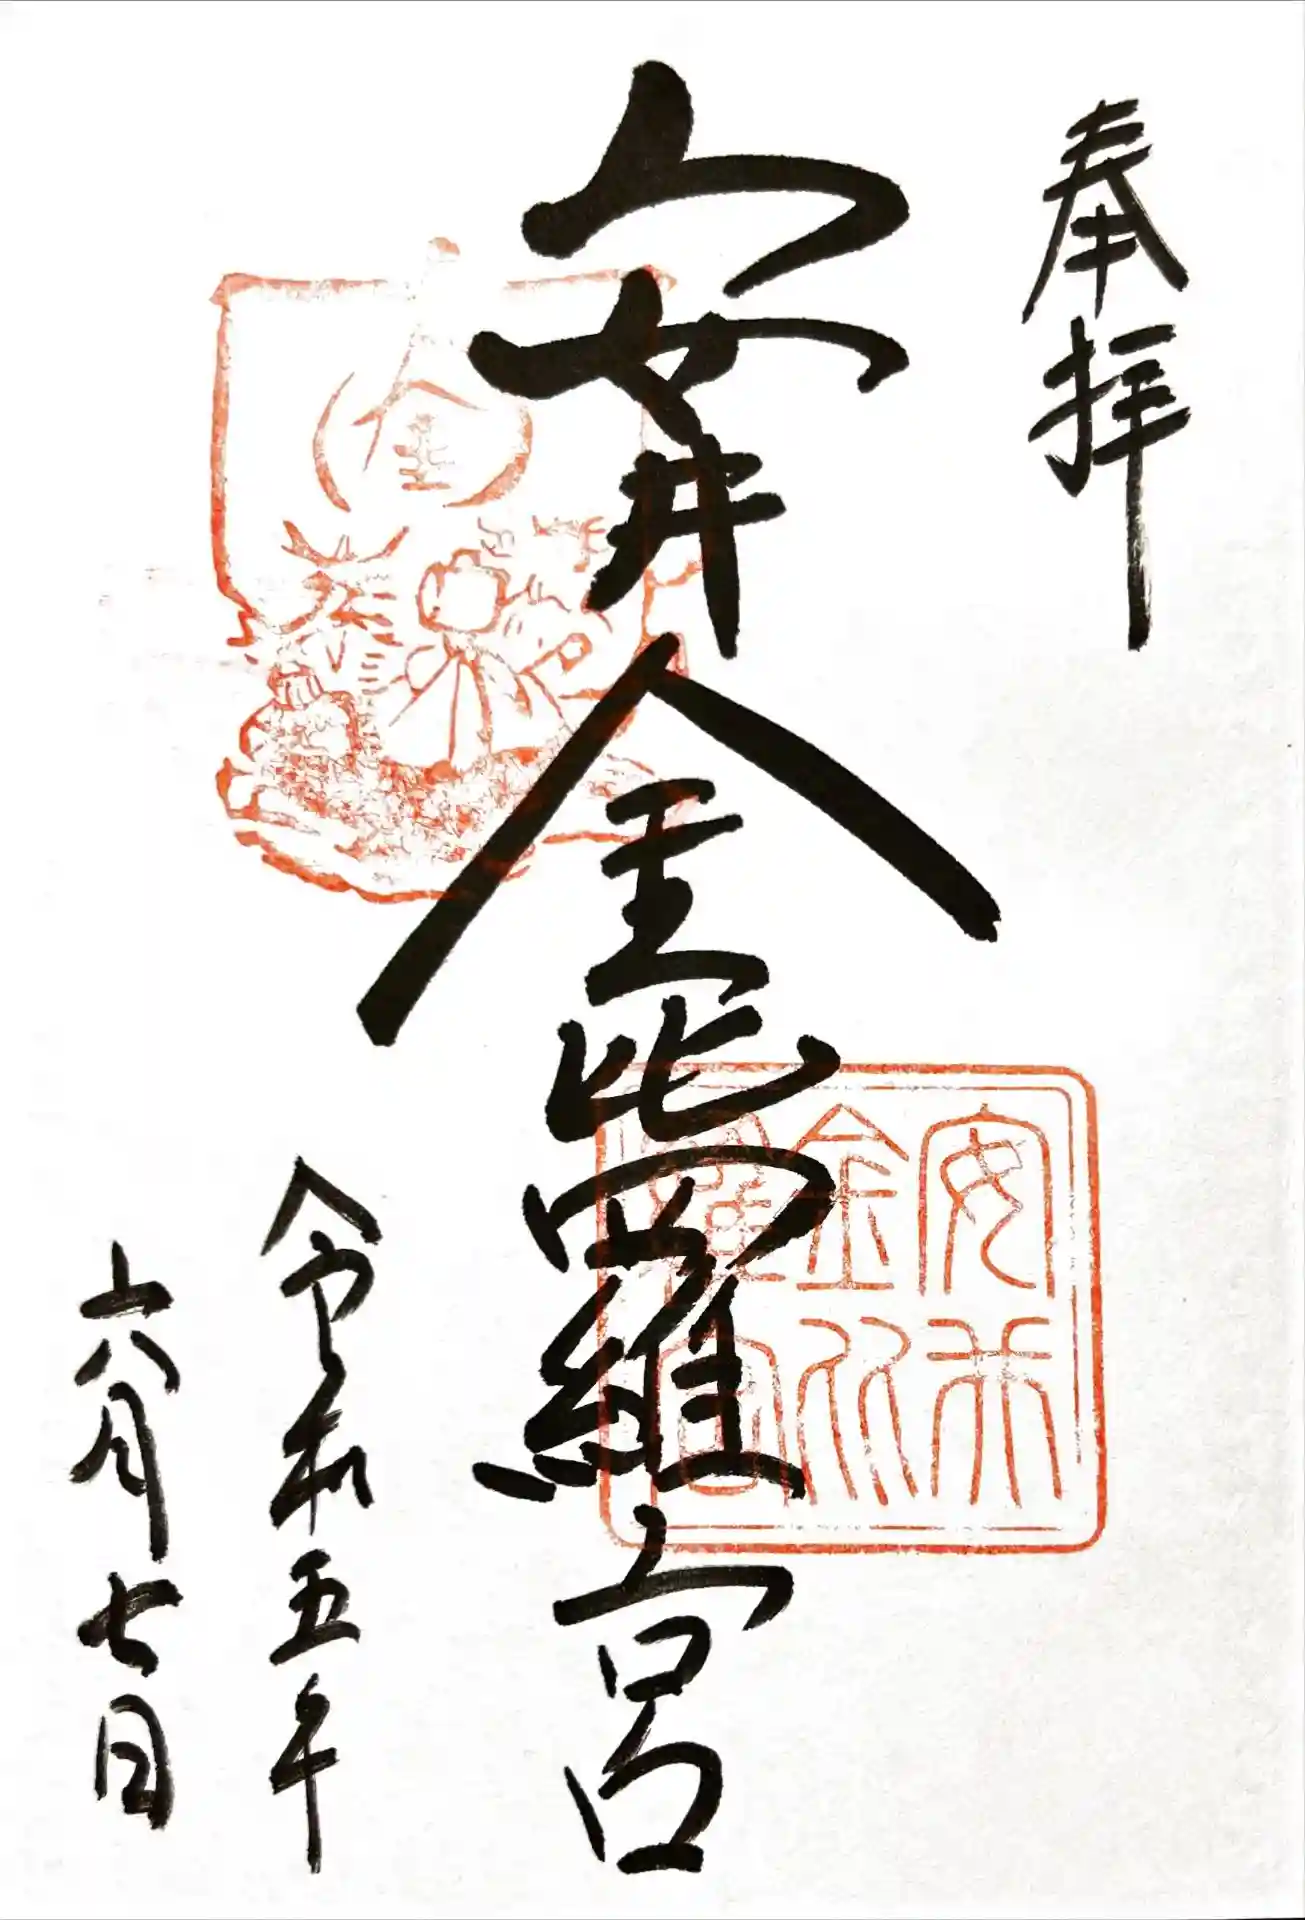 奉拝
安井金比羅宮
令和五年
六月七日
金
安井
金比
羅宮